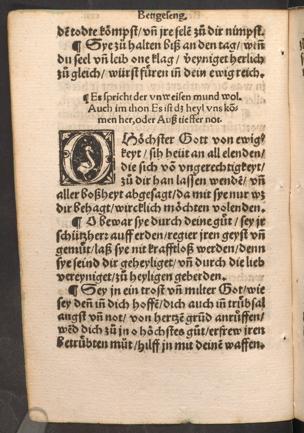 Bettgeseng.
dẽ todte kömpst/ vñ jre selẽ zů dir nimpst.
¶ Sye zů halten biß an den tag/ weñ
du seel vñ leib one klag/ vereyniget herlich
zů gleich/ würst füren in dein ewig reich.
¶ Es spricht der vnweisen mund wol.
Auch im thon Es ist dz heyl vns kõ⸗
men her, oder Auß tieffer not.
O Höchster Gott von ewig⸗
keyt/ sih heüt an all elenden/
die sich võ vngerechtigkeyt/
zů dir han lassen wendẽ/ vñ
aller boßheyt abgesagt/ da mit sye nur wz
dir behagt/ wircklich möchten volenden.
¶ O bewar sye durch deine güt/ sey je
schützherr auff erden/ regier jren geyst vñ
gemüt/ laß sye nit krafftloß werden/ denn
sye seind dir geheyliget/ vñ durch die lieb
vereyniget/ zů heyligen geberden.
¶ Sey jn ein trost vñ milter Got/ wie
sey deñ in dich hoffẽ/ dich auch iñ trübsal
angst vñ not/ von hertzẽ grũd anrůffen/
wẽd dich zů jn o höchstes gůt/ erfrew jren
betrübten můt/ hilff jn mit deinẽ waffen.